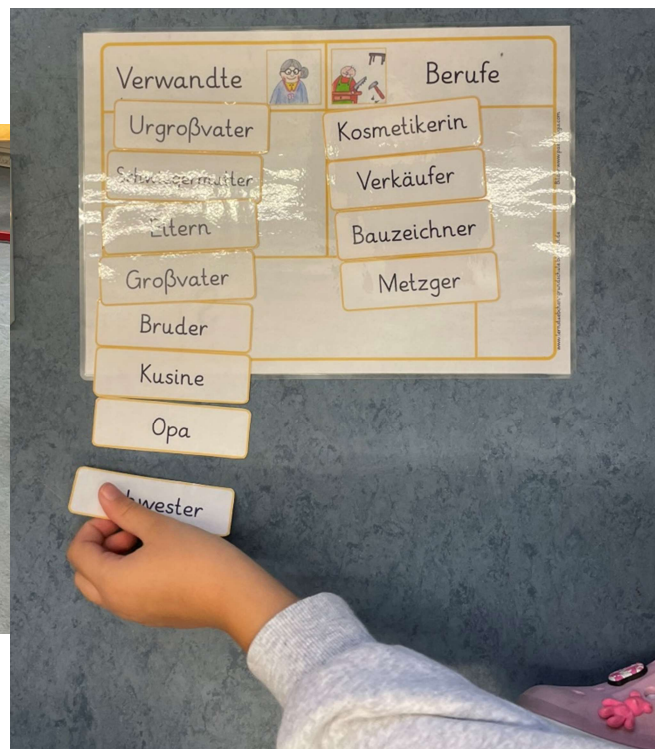 Verwandte
Berufe
Urgroßvater
Schwiegermutter
Eltern
Großvater
Bruder
Kusine
Opa
hwester
Kosmetikerin
Verkäufer
Bauzeichner
Metzger